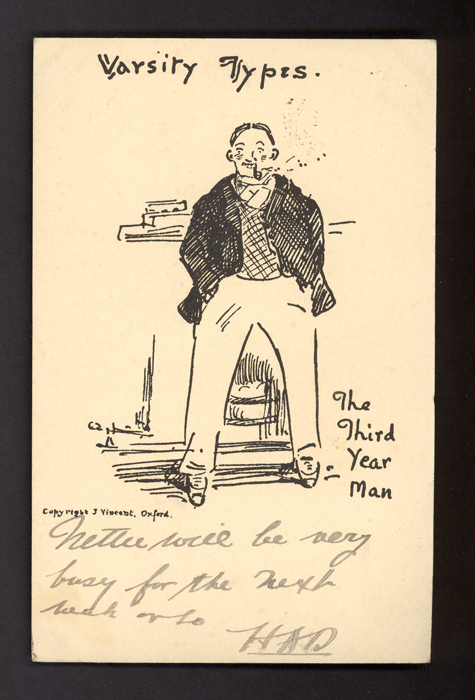 Varsity Types.
The
Third
Year
Man
Copyright J Vincent, Oxford.
Nettie will be very
busy for the next
week or so
HAD